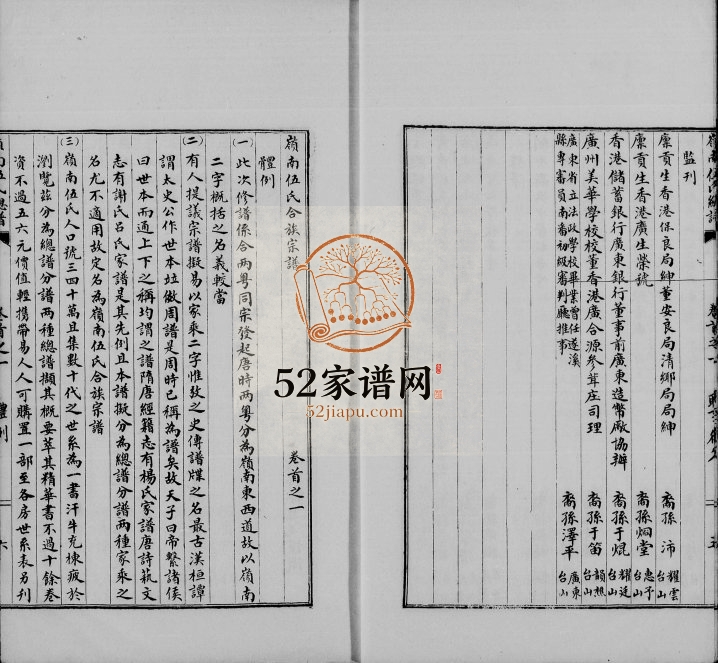 監刊
廪貢生香港保良局紳董安良局清鄉局局紳
裔孫沛
耀雲
台山
廪貢生香港廣生榮號
裔孫炯堂
惠予
台山
香港儲蓄銀行廣東銀行董事前廣東造幣廠協辦
裔孫于焜
耀廷
台山
廣州美華學校校董香港廣合源參茸庄司理
裔孫于笛
韻樵
台山
廣東省立法政學校畢業曾任遂溪
縣專審員南番初級審判廳推事
裔孫澤平
廣東
台山
嶺南伍氏合族宗譜
卷首之一
體例
㈠此次修譜係合兩粵同宗發起唐時兩粵分為嶺南東西道故以嶺南
二字概括之名義較當
㈡有人提議宗譜擬易以家乘二字惟攷之史傳譜牒之名最古漢桓譚
謂太史公作世本竝倣周譜是周時已稱為譜矣故天子曰帝繫諸侯
曰世本而通上下之稱均謂之譜隋唐經籍志有楊氏家譜唐詩萟文
志有謝氏呂氏家譜是其先例且本譜擬分為總譜分譜兩種家乘之
名尤不適用故定名為嶺南伍氏合族宗譜
㈢嶺南伍氏人口號三四十萬且集數十代之世系為一書汗牛充棟疲於
瀏覽茲分為總譜分譜兩種總譜擷其概要萃其精華書不過十餘卷
資不過五六元價值輕攜帶易人人可購置一部至各房世系表另刊
嶺南伍氏總譜
卷首之一
體例
六
52家谱网
52jiapu.com